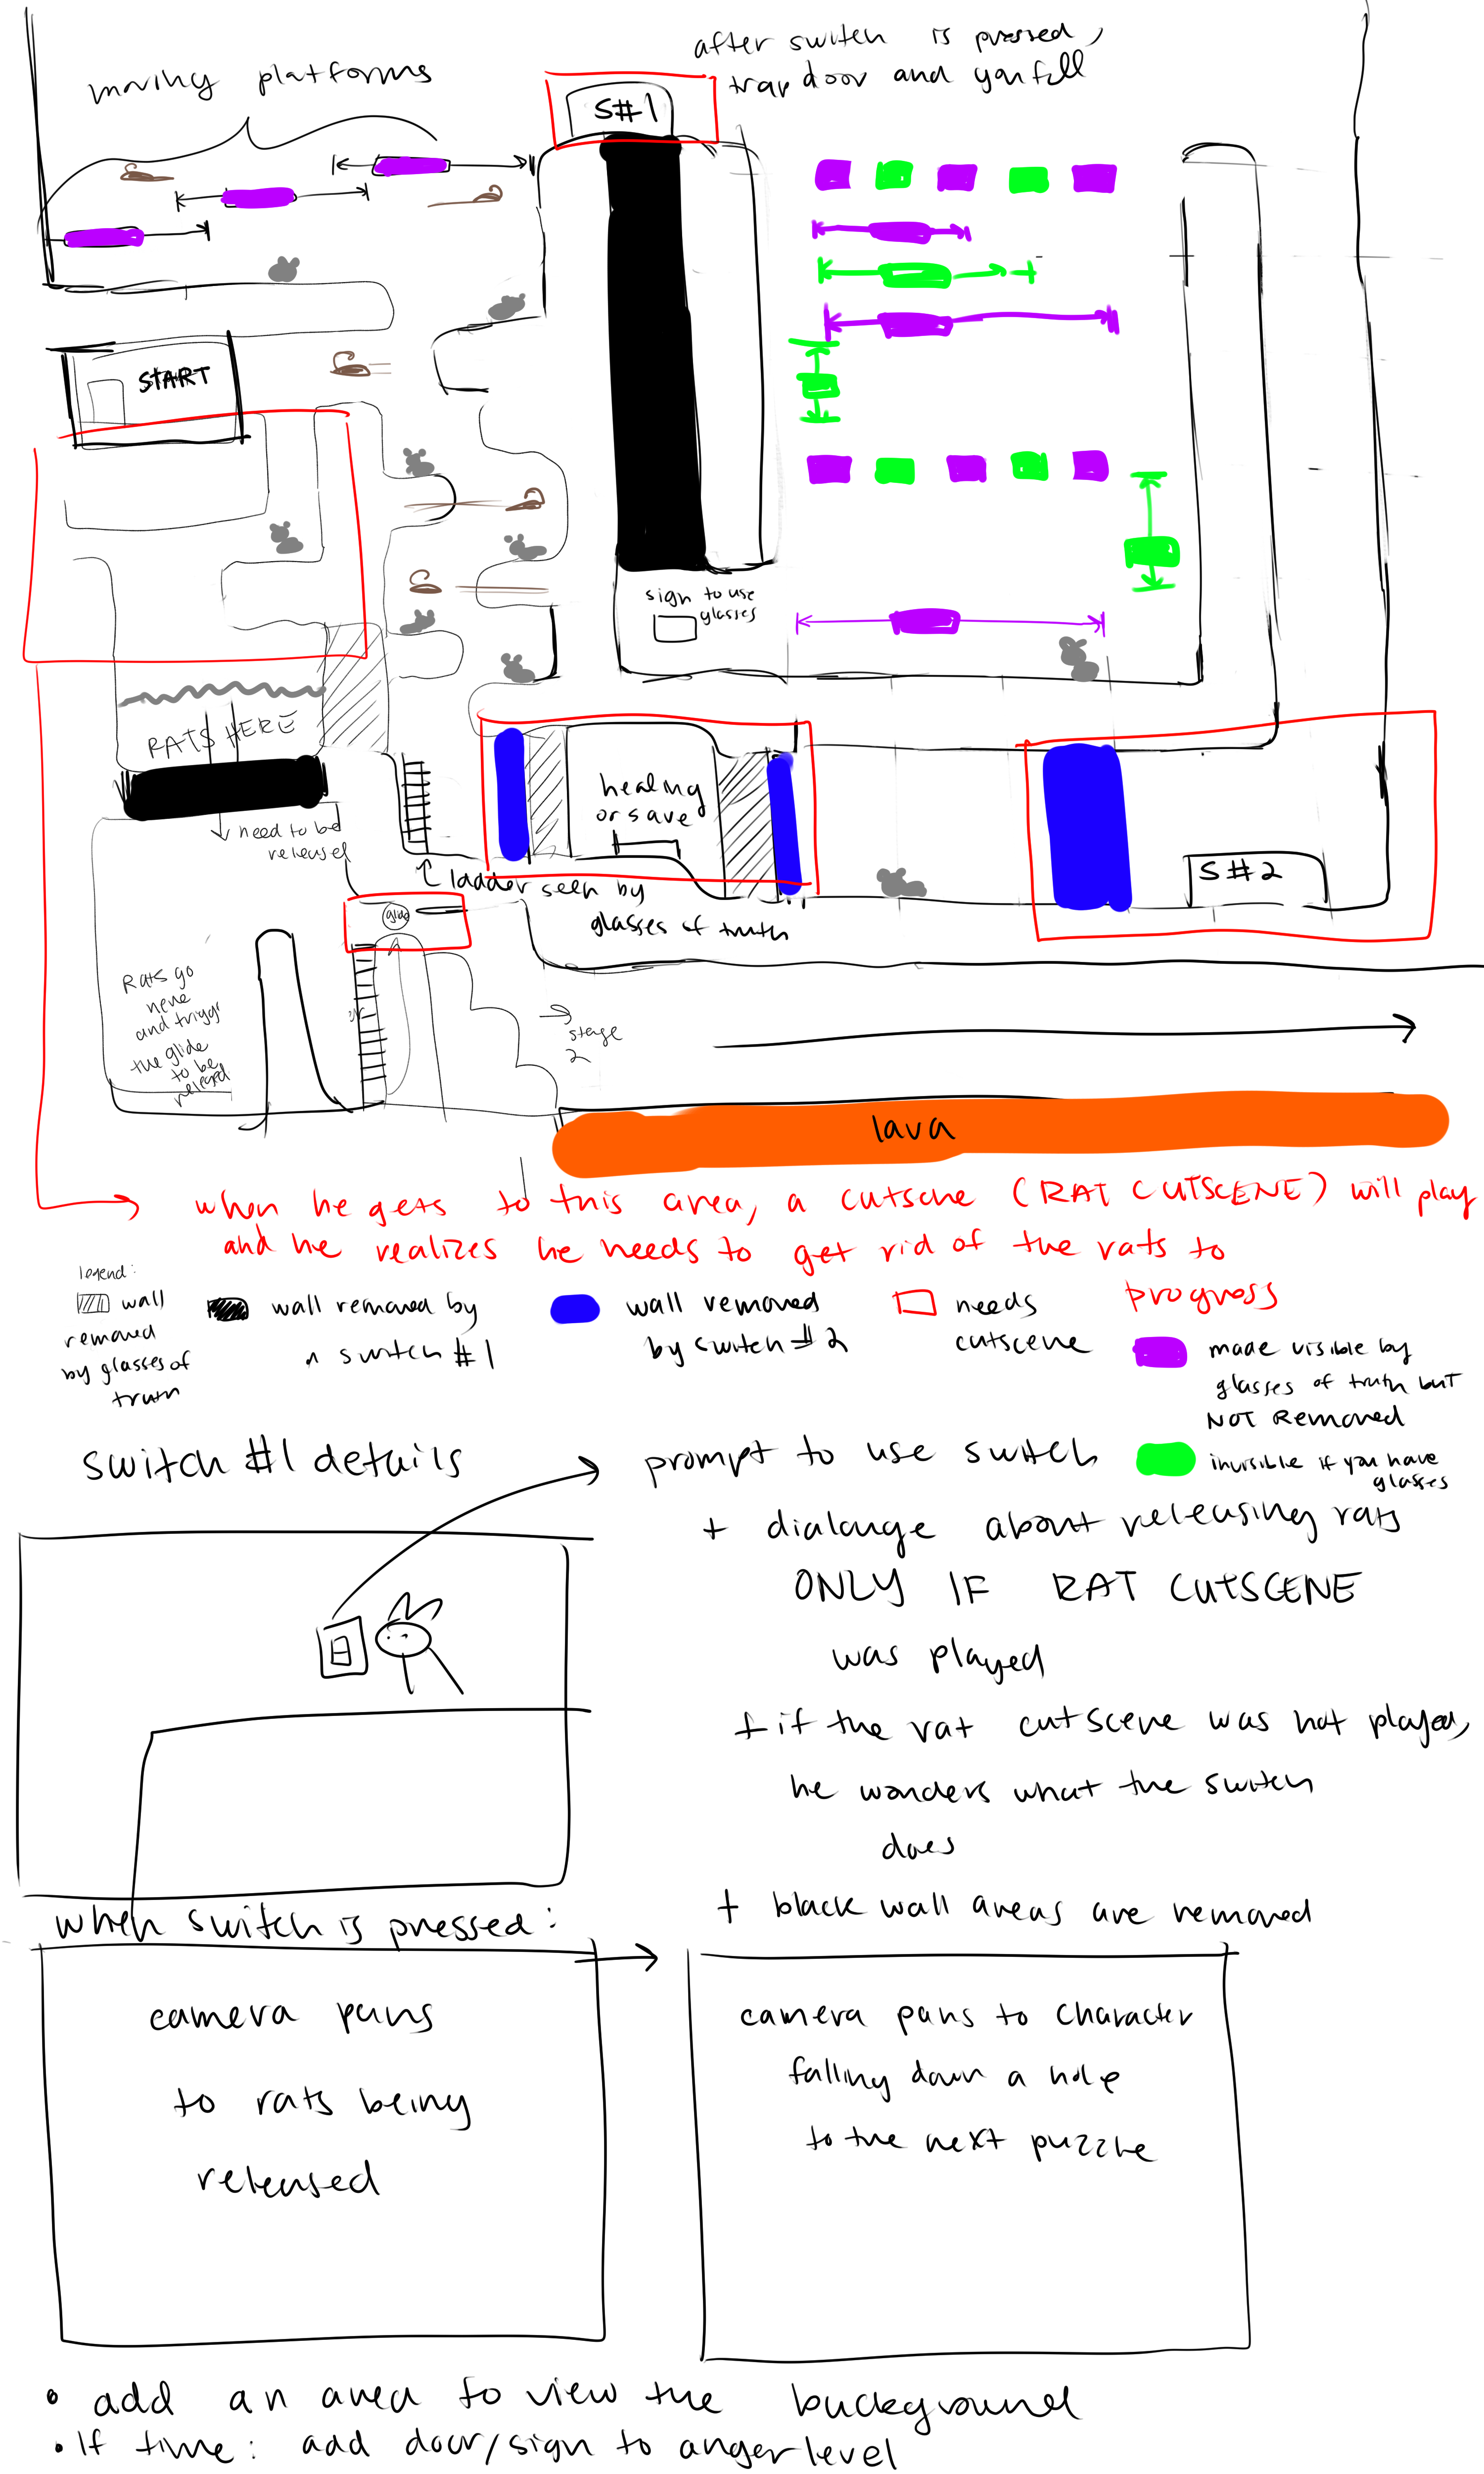 moving platforms
after switch is pressed,
trap door and you fall
S#1
START
sign to use
glasses
RATS HERE
need to be
released
healing
or save
ladder seen by
glasses of truth
S#2
glide
Rats go
here
and trigger
the glide
to be
released
stage
2
lava
when he gets to this area, a cutscne (RAT CUTSCENE) will play
and he realizes he needs to get rid of the rats to
progress
legend:
wall
removed
by glasses of
truth
wall removed by
switch #1
wall removed
by switch #2
needs
cutscene
made visible by
glasses of truth but
NOT Removed
invisible if you have
glasses
switch #1 details
prompt to use switch
+ dialouge about releasing rats
ONLY IF RAT CUTSCENE
was played
+ if the rat cutscene was not played,
he wonders what the switch
does
+ black wall areas are removed
when switch is pressed:
camera pans
to rats being
released
camera pans to character
falling down a hole
to the next puzzle
• add an area to view the background
• If time: add door/sign to anger level